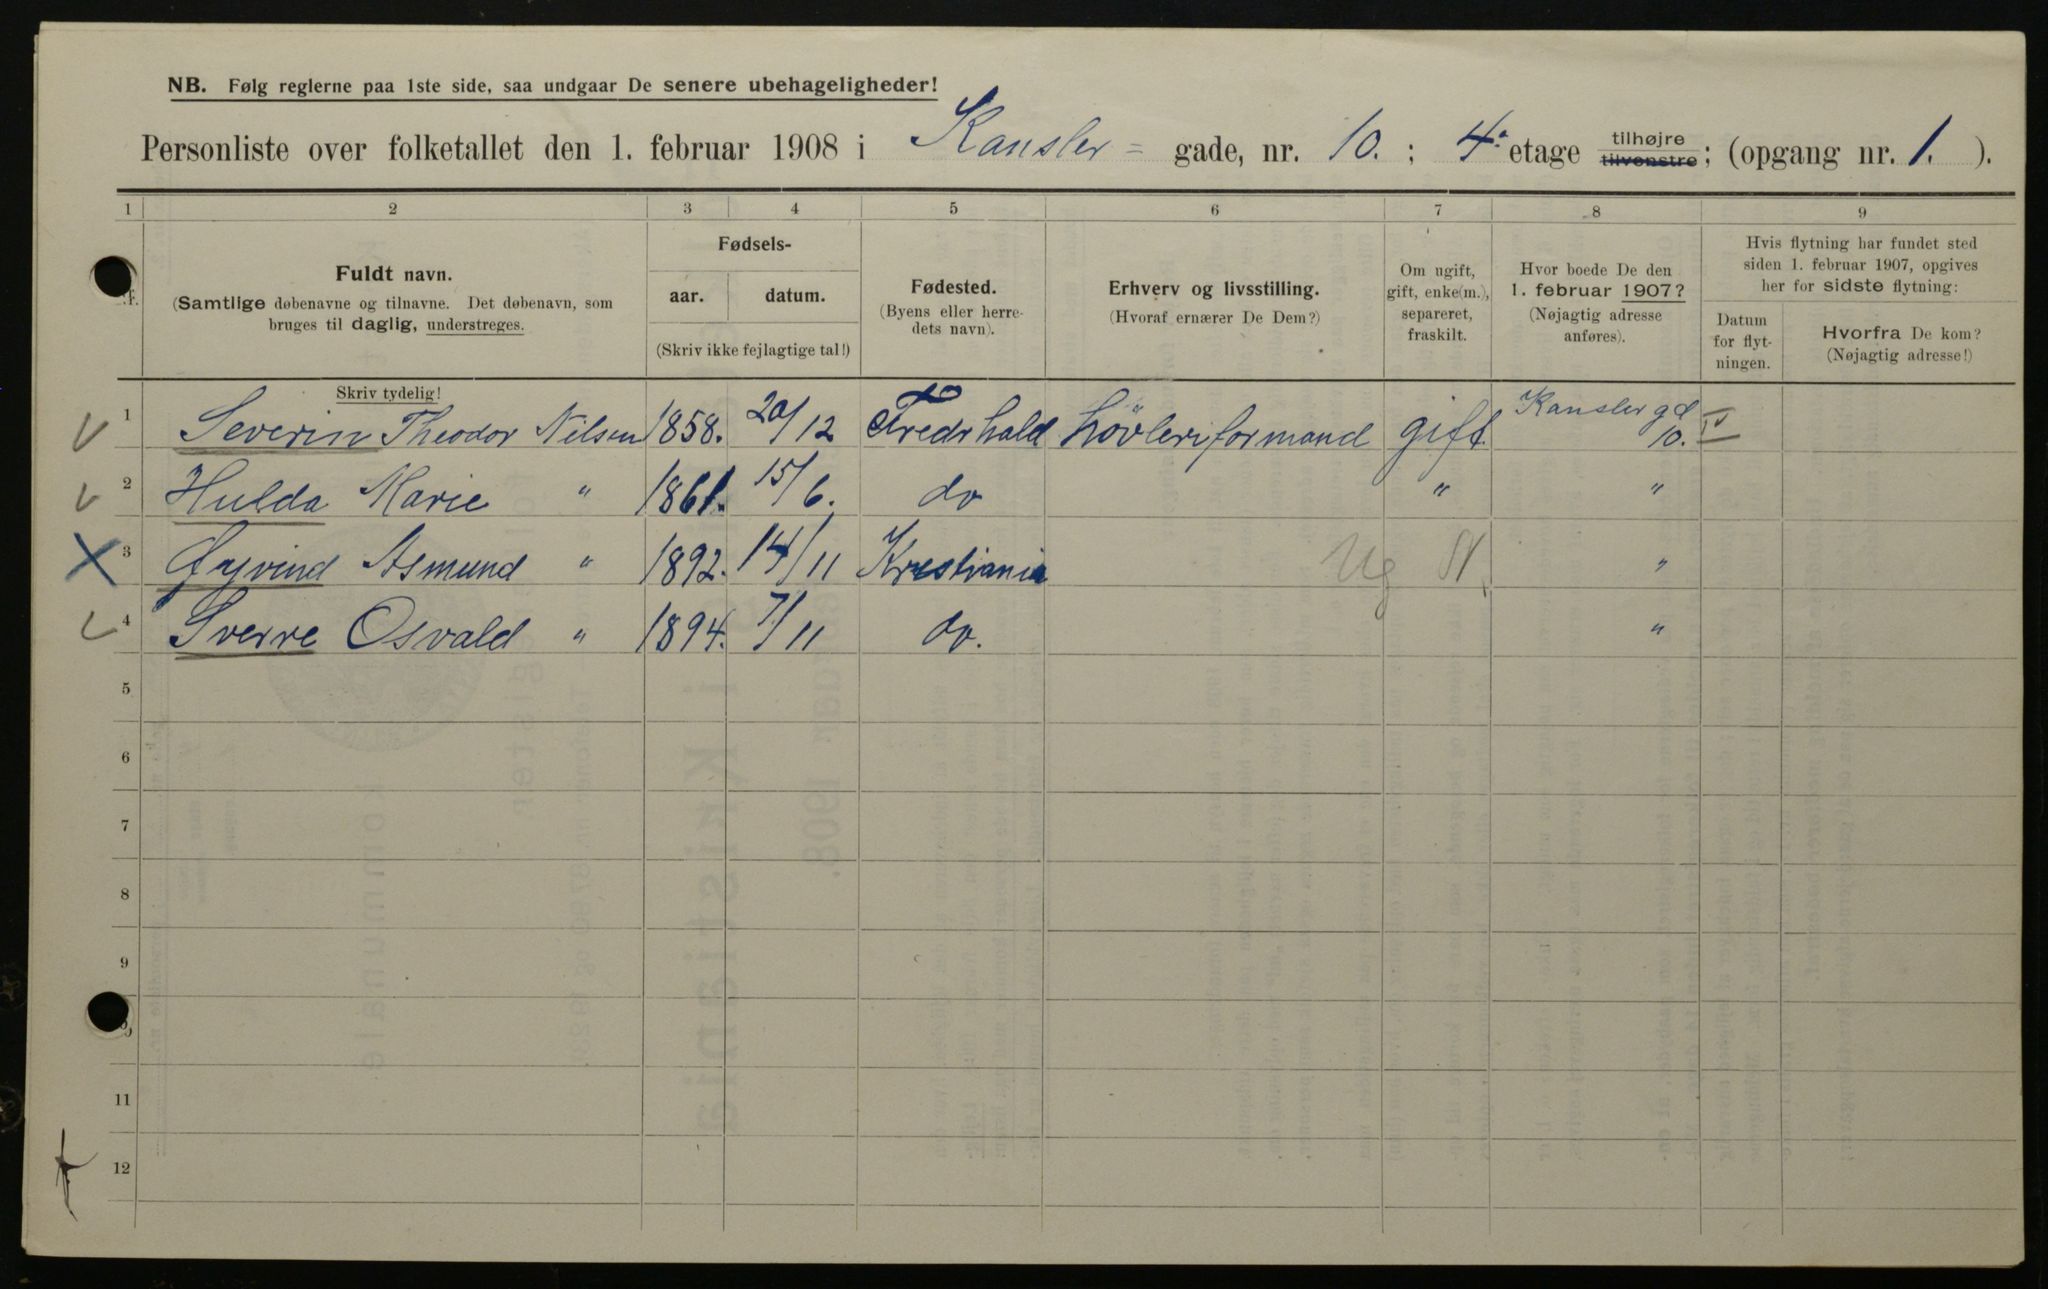 NB. Følg reglerne paa 1ste side, saa undgaar De senere ubehageligheder!
Personliste over folketallet den 1. februar 1908 i Kansler= gade, nr. 10. ; 4. etage tilhøjre tilvenstre; (opgang nr. 1. ).
1 2 3 4 5 6 7 8 9
Fuldt navn.
(Samtlige døbenavne og tilnavne. Det døbenavn, som
bruges til daglig, understreges.
Skriv tydelig!
Fødsels-
aar. datum.
(Skriv ikke fejlagtige tal!)
Fødested.
(Byens eller herre-
dets navn).
Erhverv og livsstilling.
(Hvoraf ernærer De Dem?)
Om ugift,
gift, enke(m.),
separeret,
fraskilt.
Hvor boede De den
1. februar 1907?
(Nøjagtig adresse
anføres).
Hvis flytning har fundet sted
siden 1. februar 1907, opgives
her for sidste flytning:
Datum
for flyt-
ningen.
Hvorfra De kom?
(Nøjagtig adresse!)
1 Severin Theodor Nilsen 1858. 20/12 Fredrhald Høvleriformand gift Kansler gd 10. IV
2 Hulda Marie " 1861. 15/6. do " "
3 Øyvind Asmund " 1892. 14/11 Krestiania Ug "
4 Sverre Osvald " 1894. 7/11 do. "
5
6
7
8
9
11
12